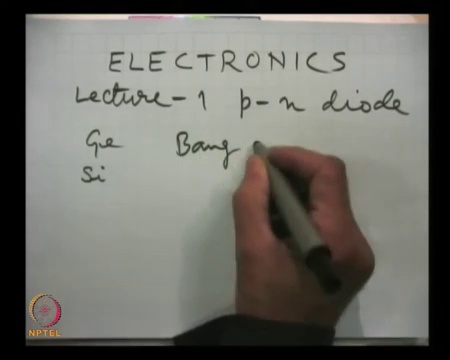 ELECTRONICS
Lecture-1 p-n diode
Ge Bang
Si
NPTEL